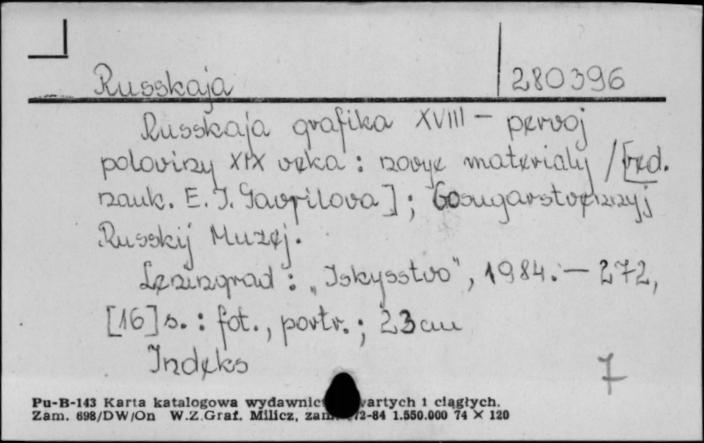 Russkaja 280396
Russkaja grafika XVIII - pervoj
poloviny XIX veka : novye materialy / [red.
nauk. E. I. Gavrilova] ; Gosugarstvennyj
Russkij Muzej.
Leningrad : „Iskysstvo", 1984. - 272,
[16] s. : fot., portr. ; 23 cm
Indeks 7
Pu-B-143 Karta katalogowa wydawnict wartych i ciągłych.
Zam. 698/DW/On W.Z.Graf. Milicz, zam. 72-84 1.550.000 74 × 120